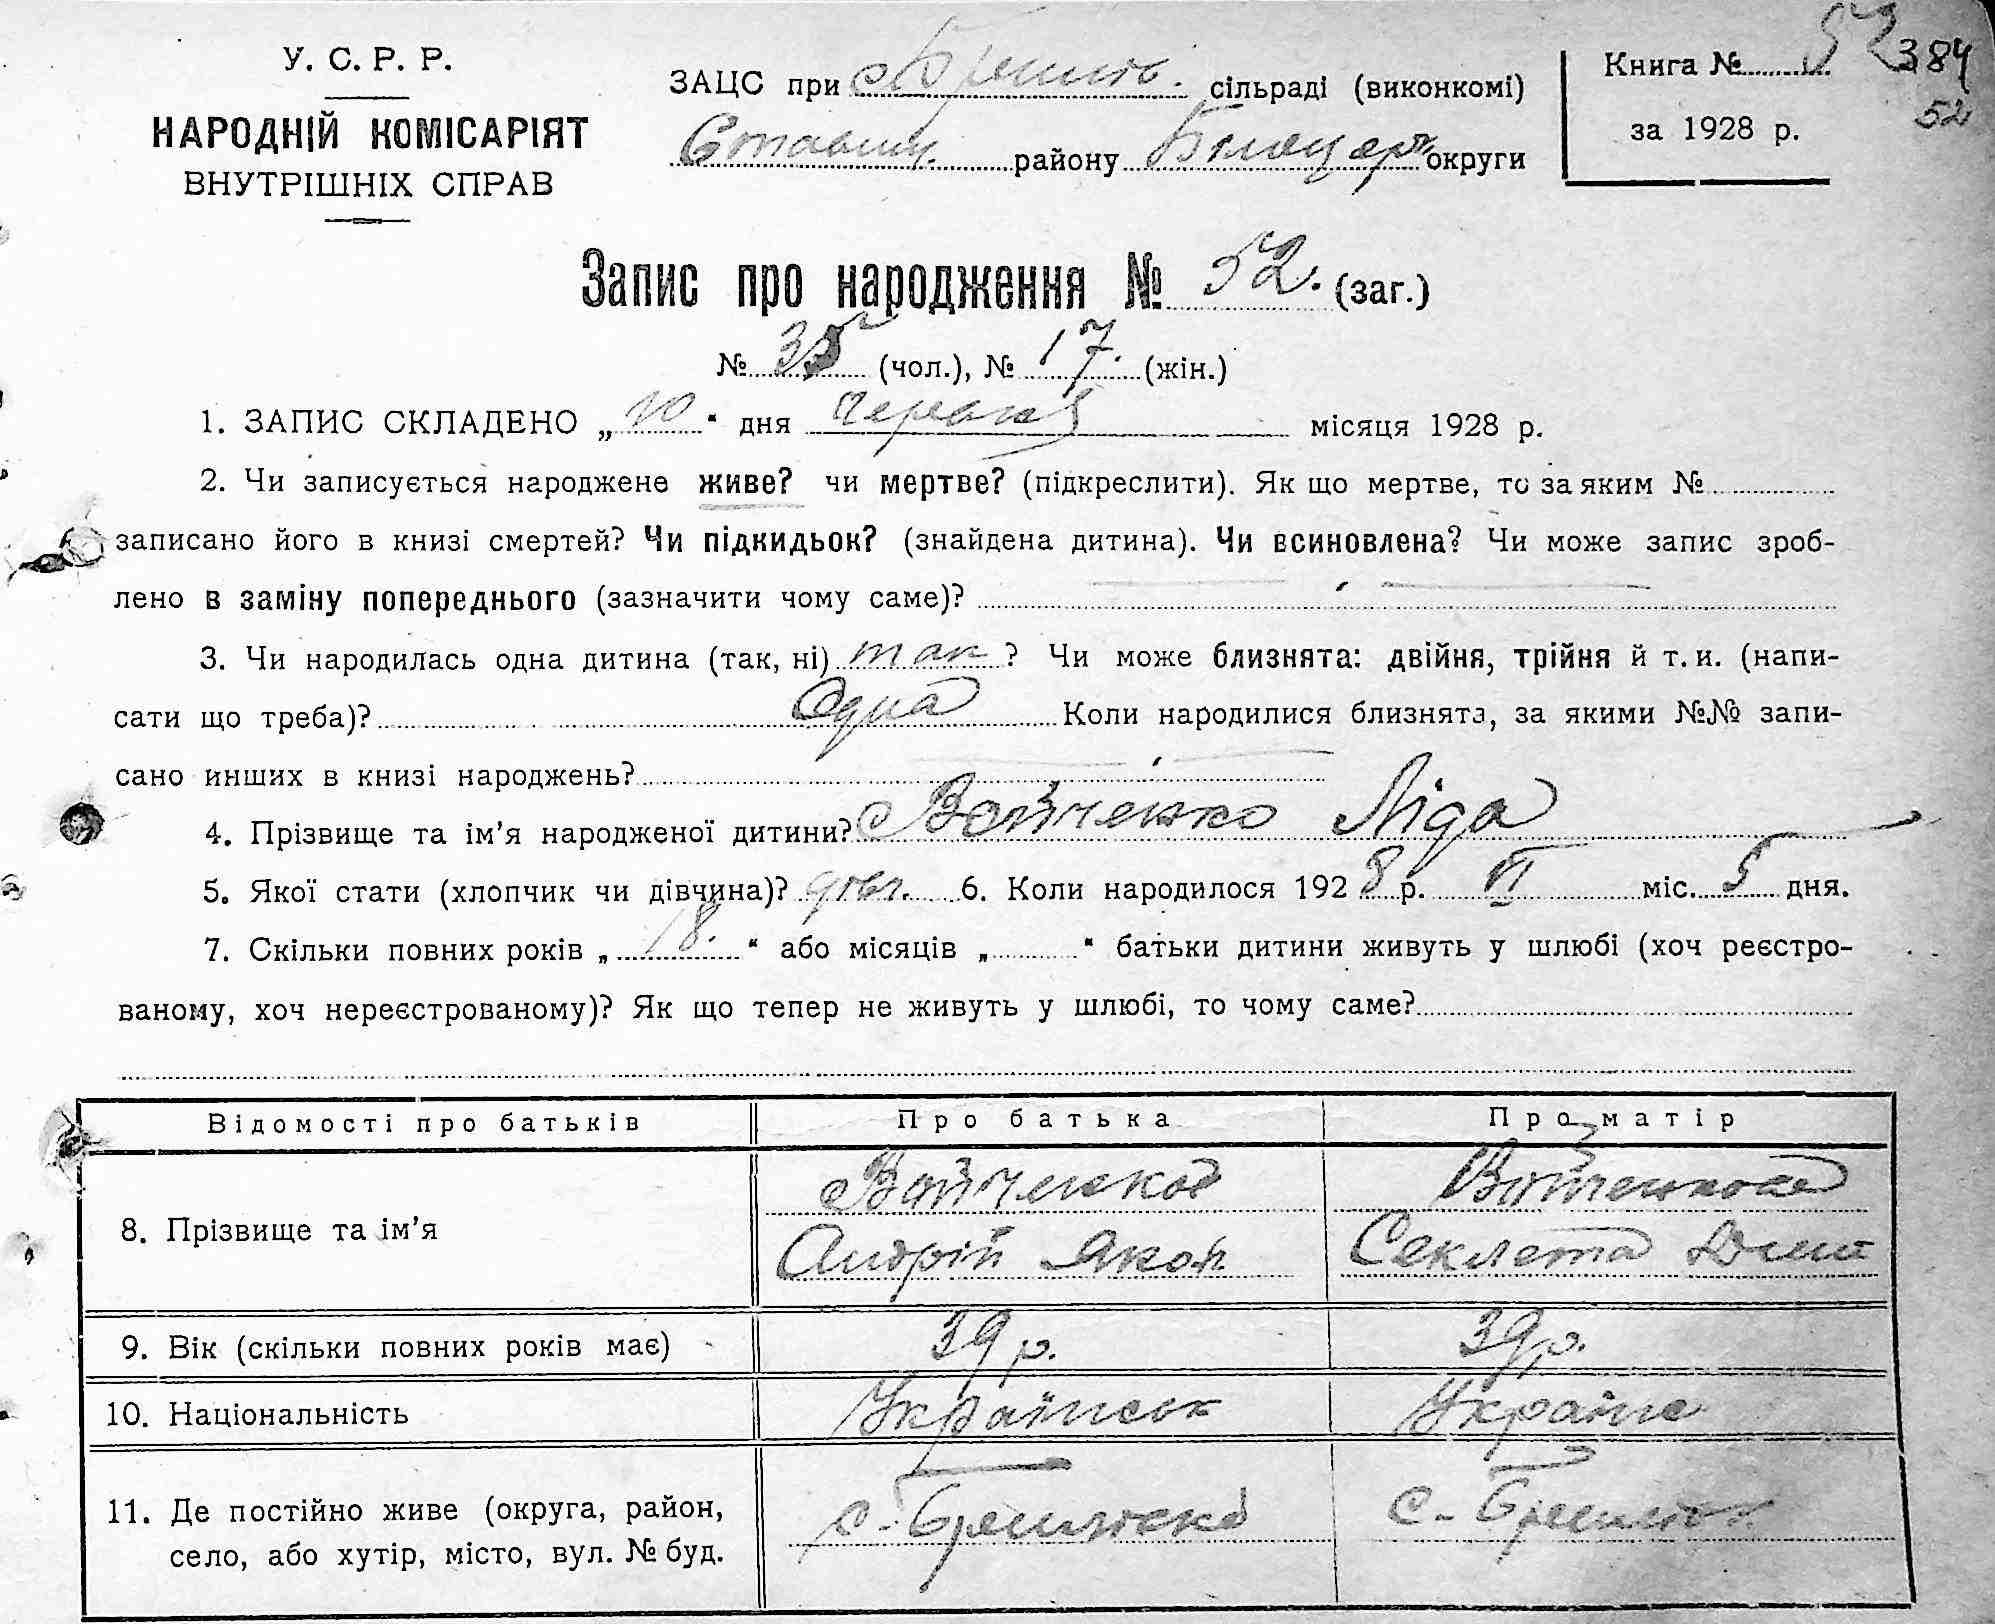 У. С. Р. Р.
НАРОДНІЙ КОМІСАРІЯТ
ВНУТРІШНІХ СПРАВ
ЗАЦС при сільраді (виконкомі)
Ставищ. району Білоцерк округи
Книга № 52
за 1928 р.
384
52
Запис про народження № 52. (заг.)
№ 35 (чол.), № 17. (жін.)
1. ЗАПИС СКЛАДЕНО „10“ дня червня місяця 1928 р.
2. Чи записується народжене живе? чи мертве? (підкреслити). Як що мертве, то за яким №
записано його в книзі смертей? Чи підкидьок? (знайдена дитина). Чи всиновлена? Чи може запис зроб-
лено в заміну попереднього (зазначити чому саме)?
3. Чи народилась одна дитина (так, ні) так ? Чи може близнята: двійня, трійня й т. и. (напи-
сати що треба)? Одна Коли народилися близнята, за якими №№ запи-
сано инших в книзі народжень?
4. Прізвище та ім’я народженої дитини? Войченко Ліда
5. Якої стати (хлопчик чи дівчина)? дівч. 6. Коли народилося 1928 р. VI міс. 5 дня.
7. Скільки повних років „18.“ або місяців „ “ батьки дитини живуть у шлюбі (хоч реєстро-
ваному, хоч нереєстрованому)? Як що тепер не живуть у шлюбі, то чому саме?
Відомості про батьків Про батька Про матір
8. Прізвище та ім’я Войченко Войченкова
Андрій Яков. Секлета
9. Вік (скільки повних років має) 39 р. 39 р.
10. Національність Українськ Українс
11. Де постійно живе (округа, район,
село, або хутір, місто, вул. № буд.
с. с.